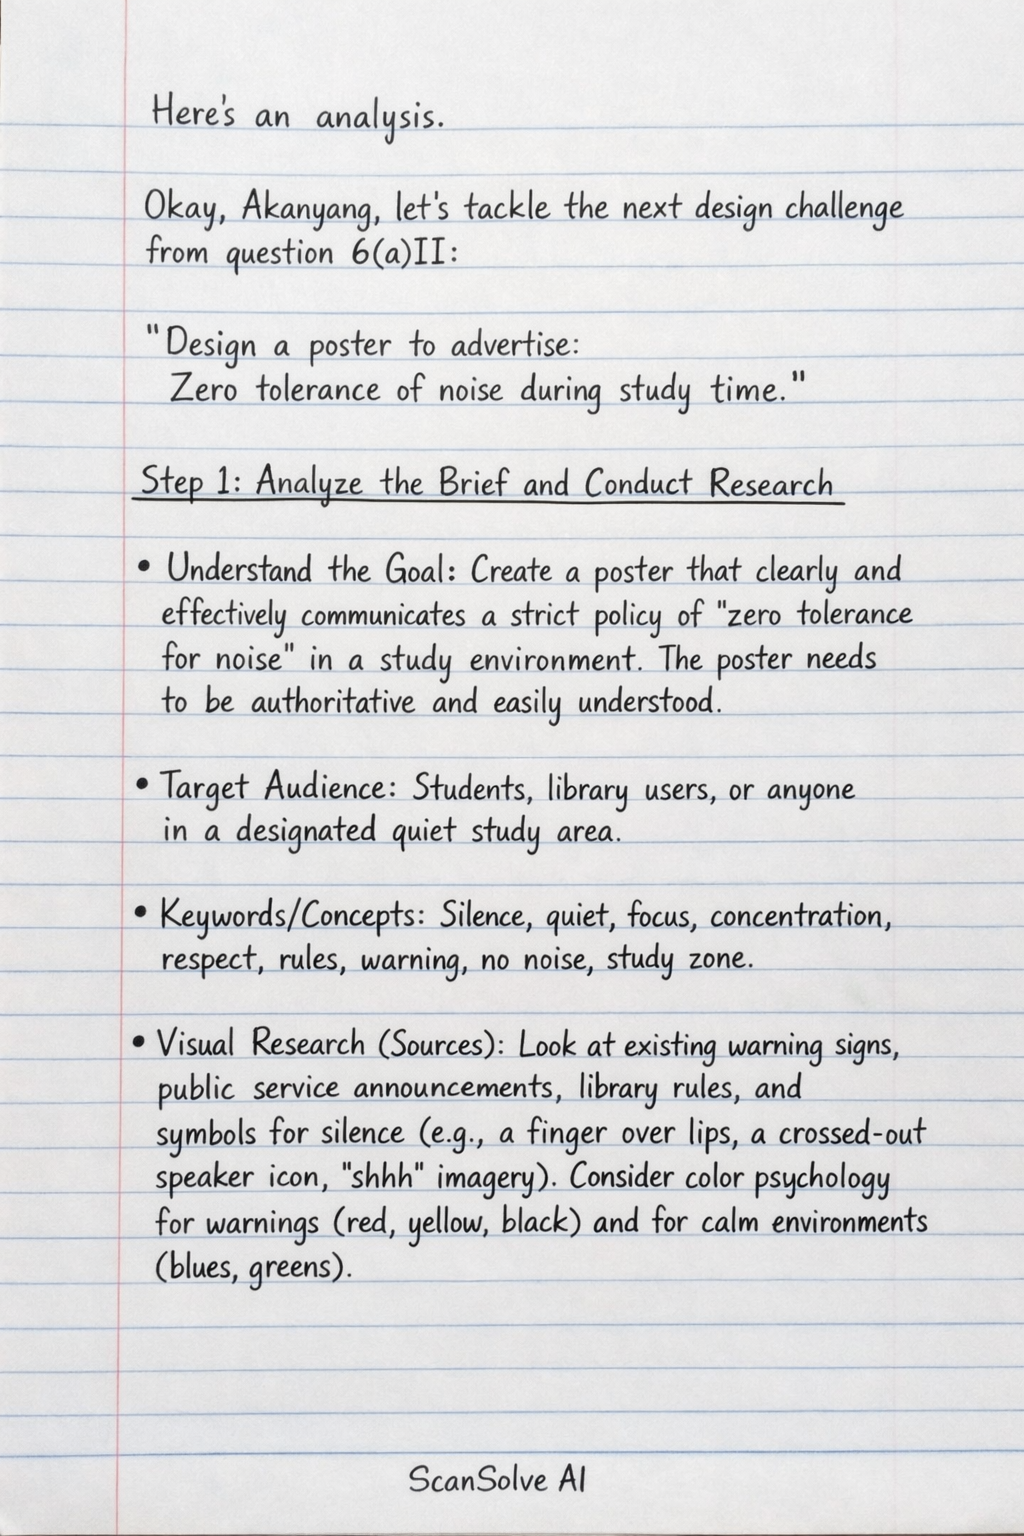 Here's an analysis.
Okay, Akanyang, let's tackle the next design challenge
from question 6(a)II:
"Design a poster to advertise:
Zero tolerance of noise during study time."
Step 1: Analyze the Brief and Conduct Research
• Understand the Goal: Create a poster that clearly and
effectively communicates a strict policy of "zero tolerance
for noise" in a study environment. The poster needs
to be authoritative and easily understood.
• Target Audience: Students, library users, or anyone
in a designated quiet study area.
• Keywords/Concepts: Silence, quiet, focus, concentration,
respect, rules, warning, no noise, study zone.
• Visual Research (Sources): Look at existing warning signs,
public service announcements, library rules, and
symbols for silence (e.g., a finger over lips, a crossed-out
speaker icon, "shhh" imagery). Consider color psychology
for warnings (red, yellow, black) and for calm environments
(blues, greens).
ScanSolve AI